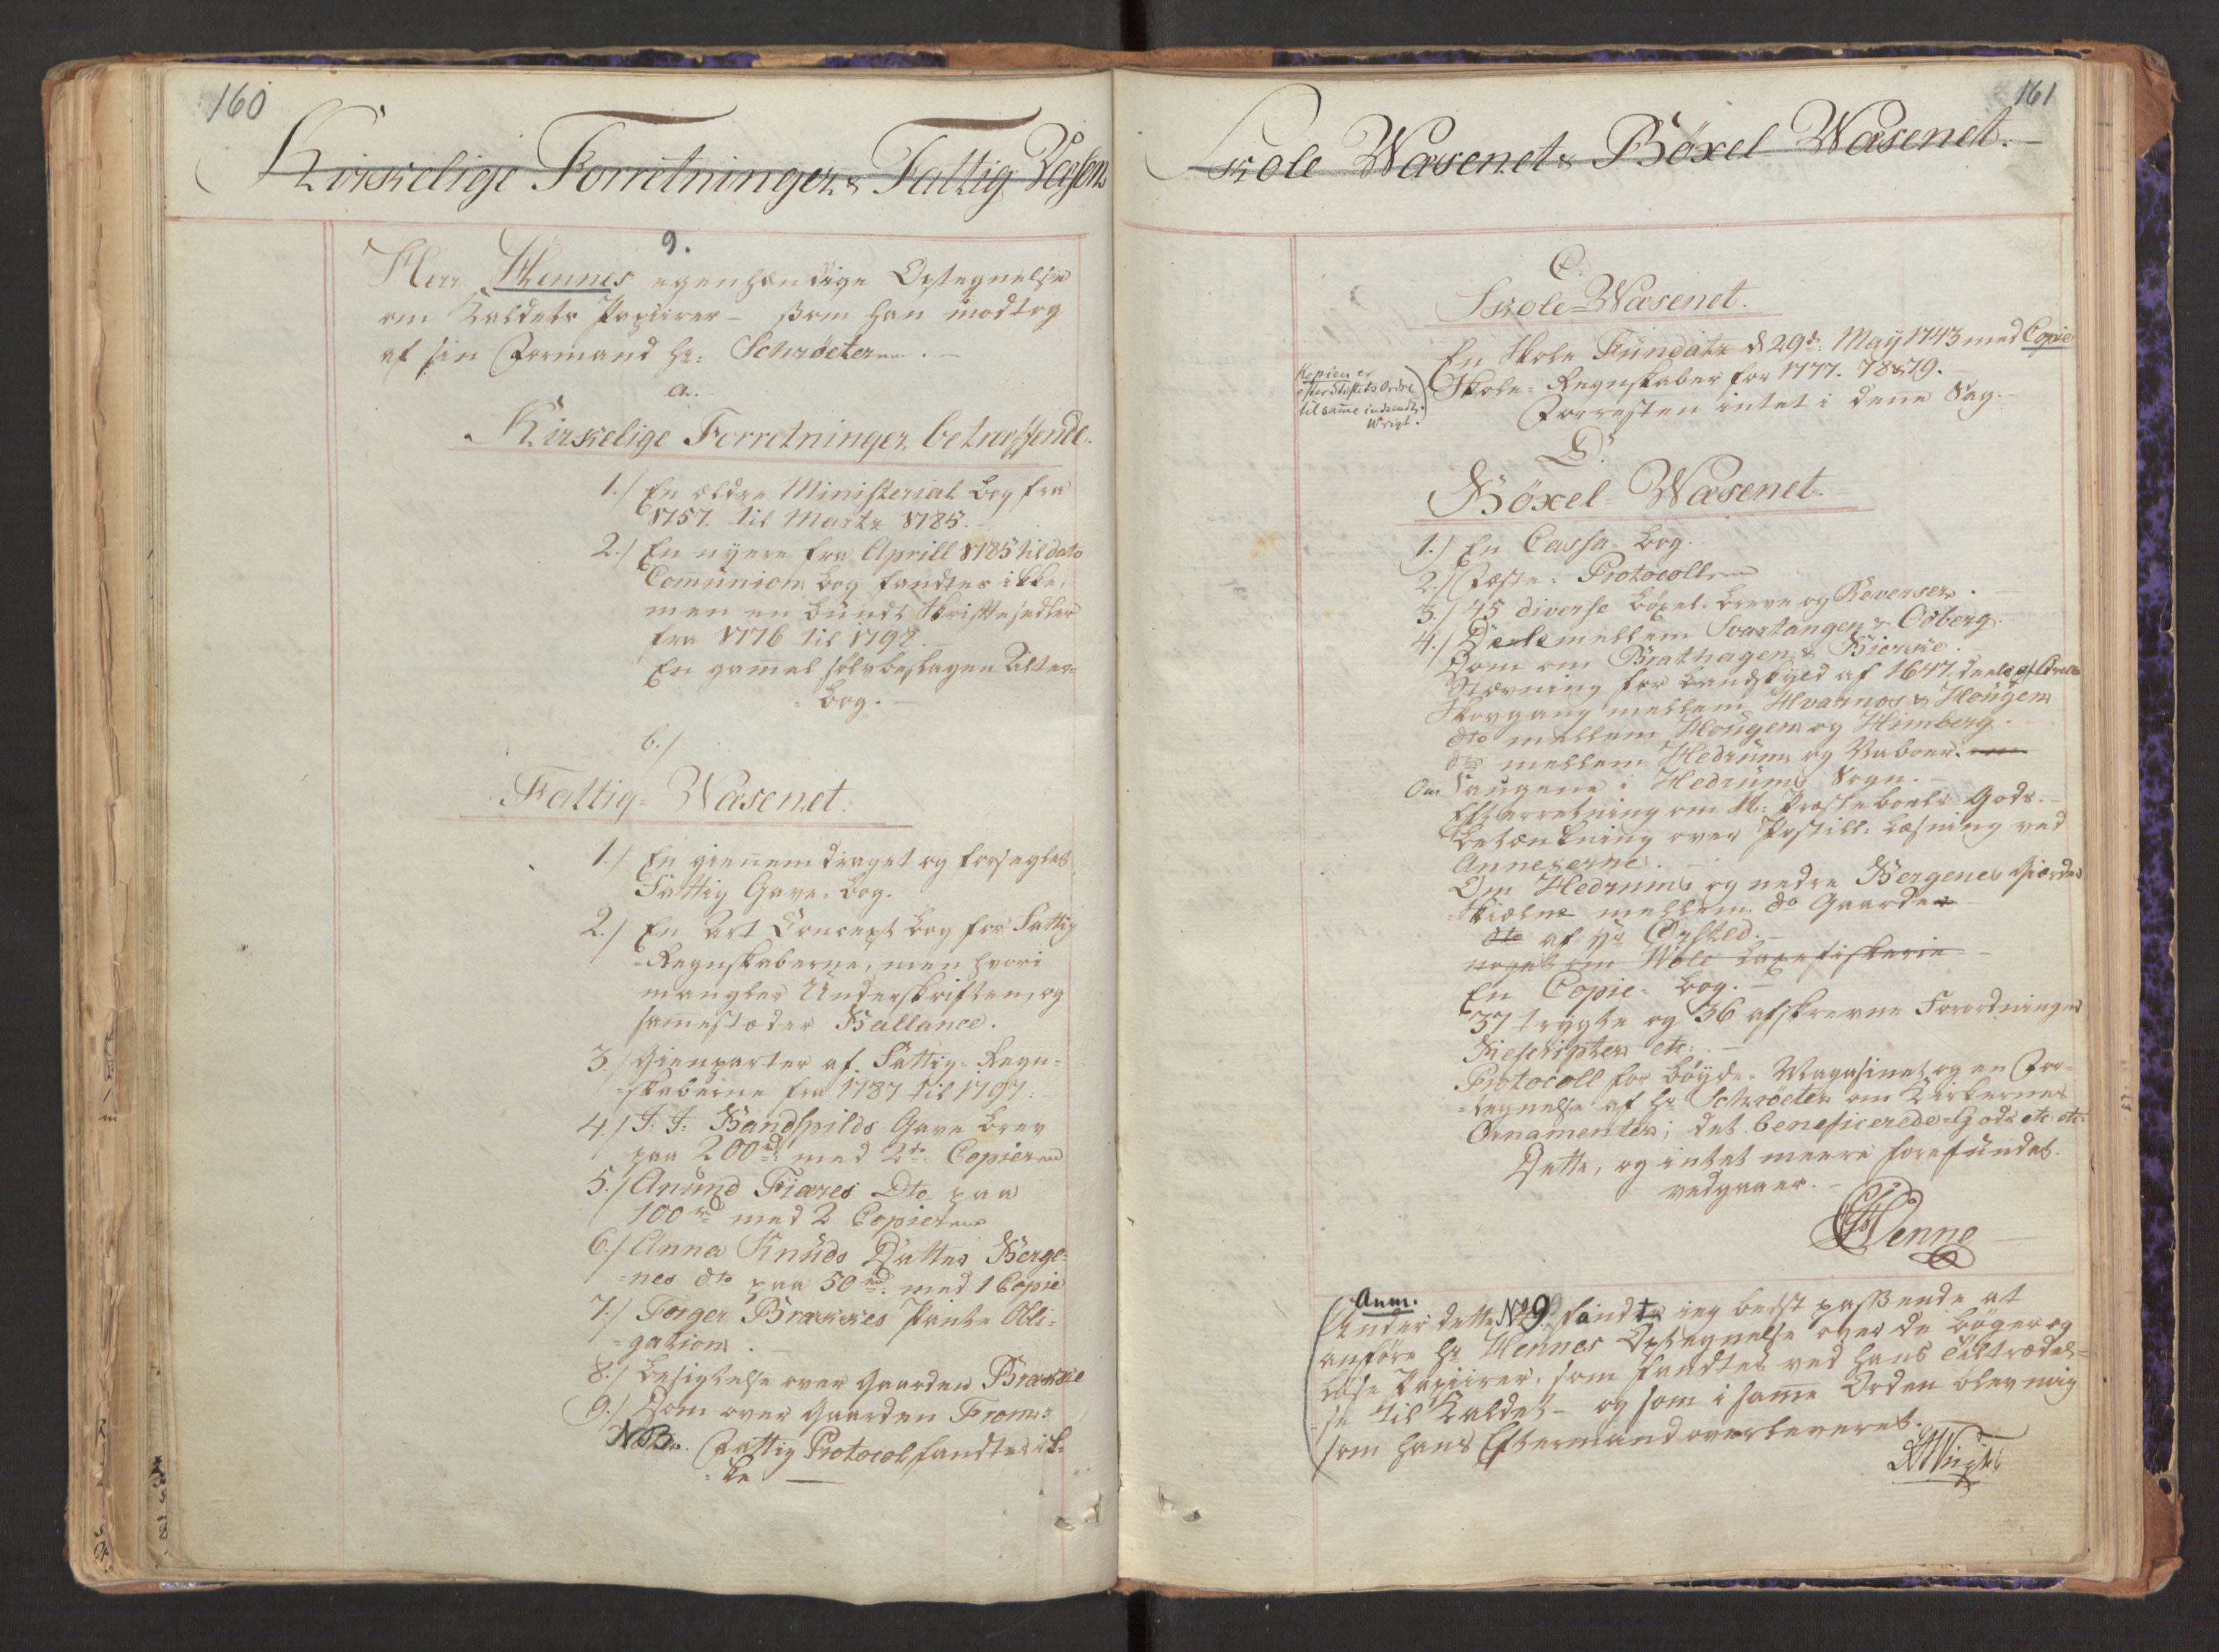 160
Kirkelige Forretninger & Fattig Væsen
9.
Herr Hennes egenhændige Optegnelse
om Kaldets Papiirer – som han modtog
af sin Formand Hr: Schrøeter. –
a.
Kirkelige Forretninger betreffende.
1./ En ældre Ministerial Bog fra
1757. til Martz 1785. –
2./ En nyere fra Aprill 1785 til dato
Com̅union Bog fandtes ikke,
men en Bundt Skriftesedler
fra 1776 til 1792
En gam̅el sølvbeslagen Alter-
Bog. –
b./
Fattig- Wæsenet.
1./ En gien̅emdraget og forseglet
Fattig Gave-Bog.
2./ En Art Concept Bog for Fattig
Regnskaberne, men hvori
mangler Underskriften, og
sam̅estæder Ballance.
3./ Gienparter af Fattig-Regn-
-skaberne fra 1787 til 1797:
4./ J: J: Gave Brev
paa 200 rd: med 2de Copier
5./ Anund Fiæres Dto paa
100 rd med 2 Copier
6./ Anna Knuds Datter Berge-
-nes dto paa 50 rd: med 1 Copie
7./ Torger Brækkes Pante Obli-
-gation. –
8./ Besigtelse over Gaarden Brække
9./ Dom over Gaarden From:
NB. Fattig Protocol fandtes ik-
-ke –
161
Skole Wæsenet & Böxel Wæsenet. –
C.
Skole-Wæsenet.
En Skole Fundatz d 29de: May 1743 med Copie
Skole-Regnskaber for 1777. 78 & 79.
Forresten intet i den̅e Sag.
Kopien er
efter Stiftets Ordre
til sam̅e indsendt.
Wright.
D.
Böxel-Wæsenet.
1./ En Cassa-Bog.
2./ Fæste-Protocoll
3./ 45 diverse Böxel-Breve og Reverser.
4./ Deele mellem Svartangen & Odberg.
Dom om Brathagen & Bierke.
Stævning for Landskyld af 1647. deels af
Skovgang mellem Hvarnes & Hougen
dto mellem Hougen og Himberg.
dto mellem Hedrum og Naboer.
Om Saugene i Hedrums Sogn. –
Efterretning om N: Præsteboels Gods. –
Betænkning over Postill-Læsning ved
Annexerne. –
Om Hedrums og nedre Bergenes Gierder
Skielne mellem do Gaarder
dto af Hr Ørsted. –
noget om Laxefiskerie –
En Copie-Bog. –
37 trygte og 36 afskrevne Forordninger
Rescripter etc: –
Protocoll for Bøyde-Magasinet og en For-
-tegnelse af Hr Schrøeter om Kirkernes
Ornamenter; det beneficerede-Gods etc etc
Dette, og intet meere forefundet.
vedgaaer. –
Henne
Anm.
Under dette No 9 fandt jeg bedst passende at
anføre Hr Hennes Optegnelse over de Bøger og
løse Papiirer, som fandtes ved hans Tiltrædel-
-se til Kaldet – og som i sam̅e Orden blev mig
som hans Eftermand overleveret.
Wright